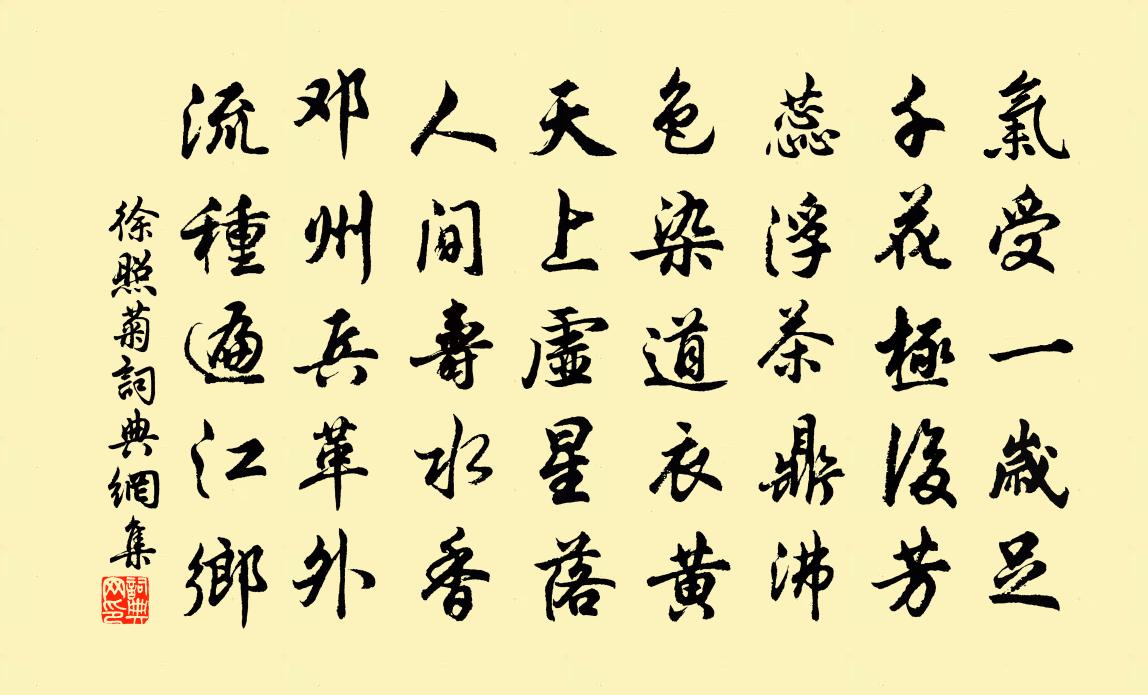 氣受一歲足
千花極後芳
蕊浮茶鼎沸
色染道衣黄
天上虛星落
人間壽水香
邓州兵革外
流種遍江鄉
徐照菊詞典網集
詞典網印